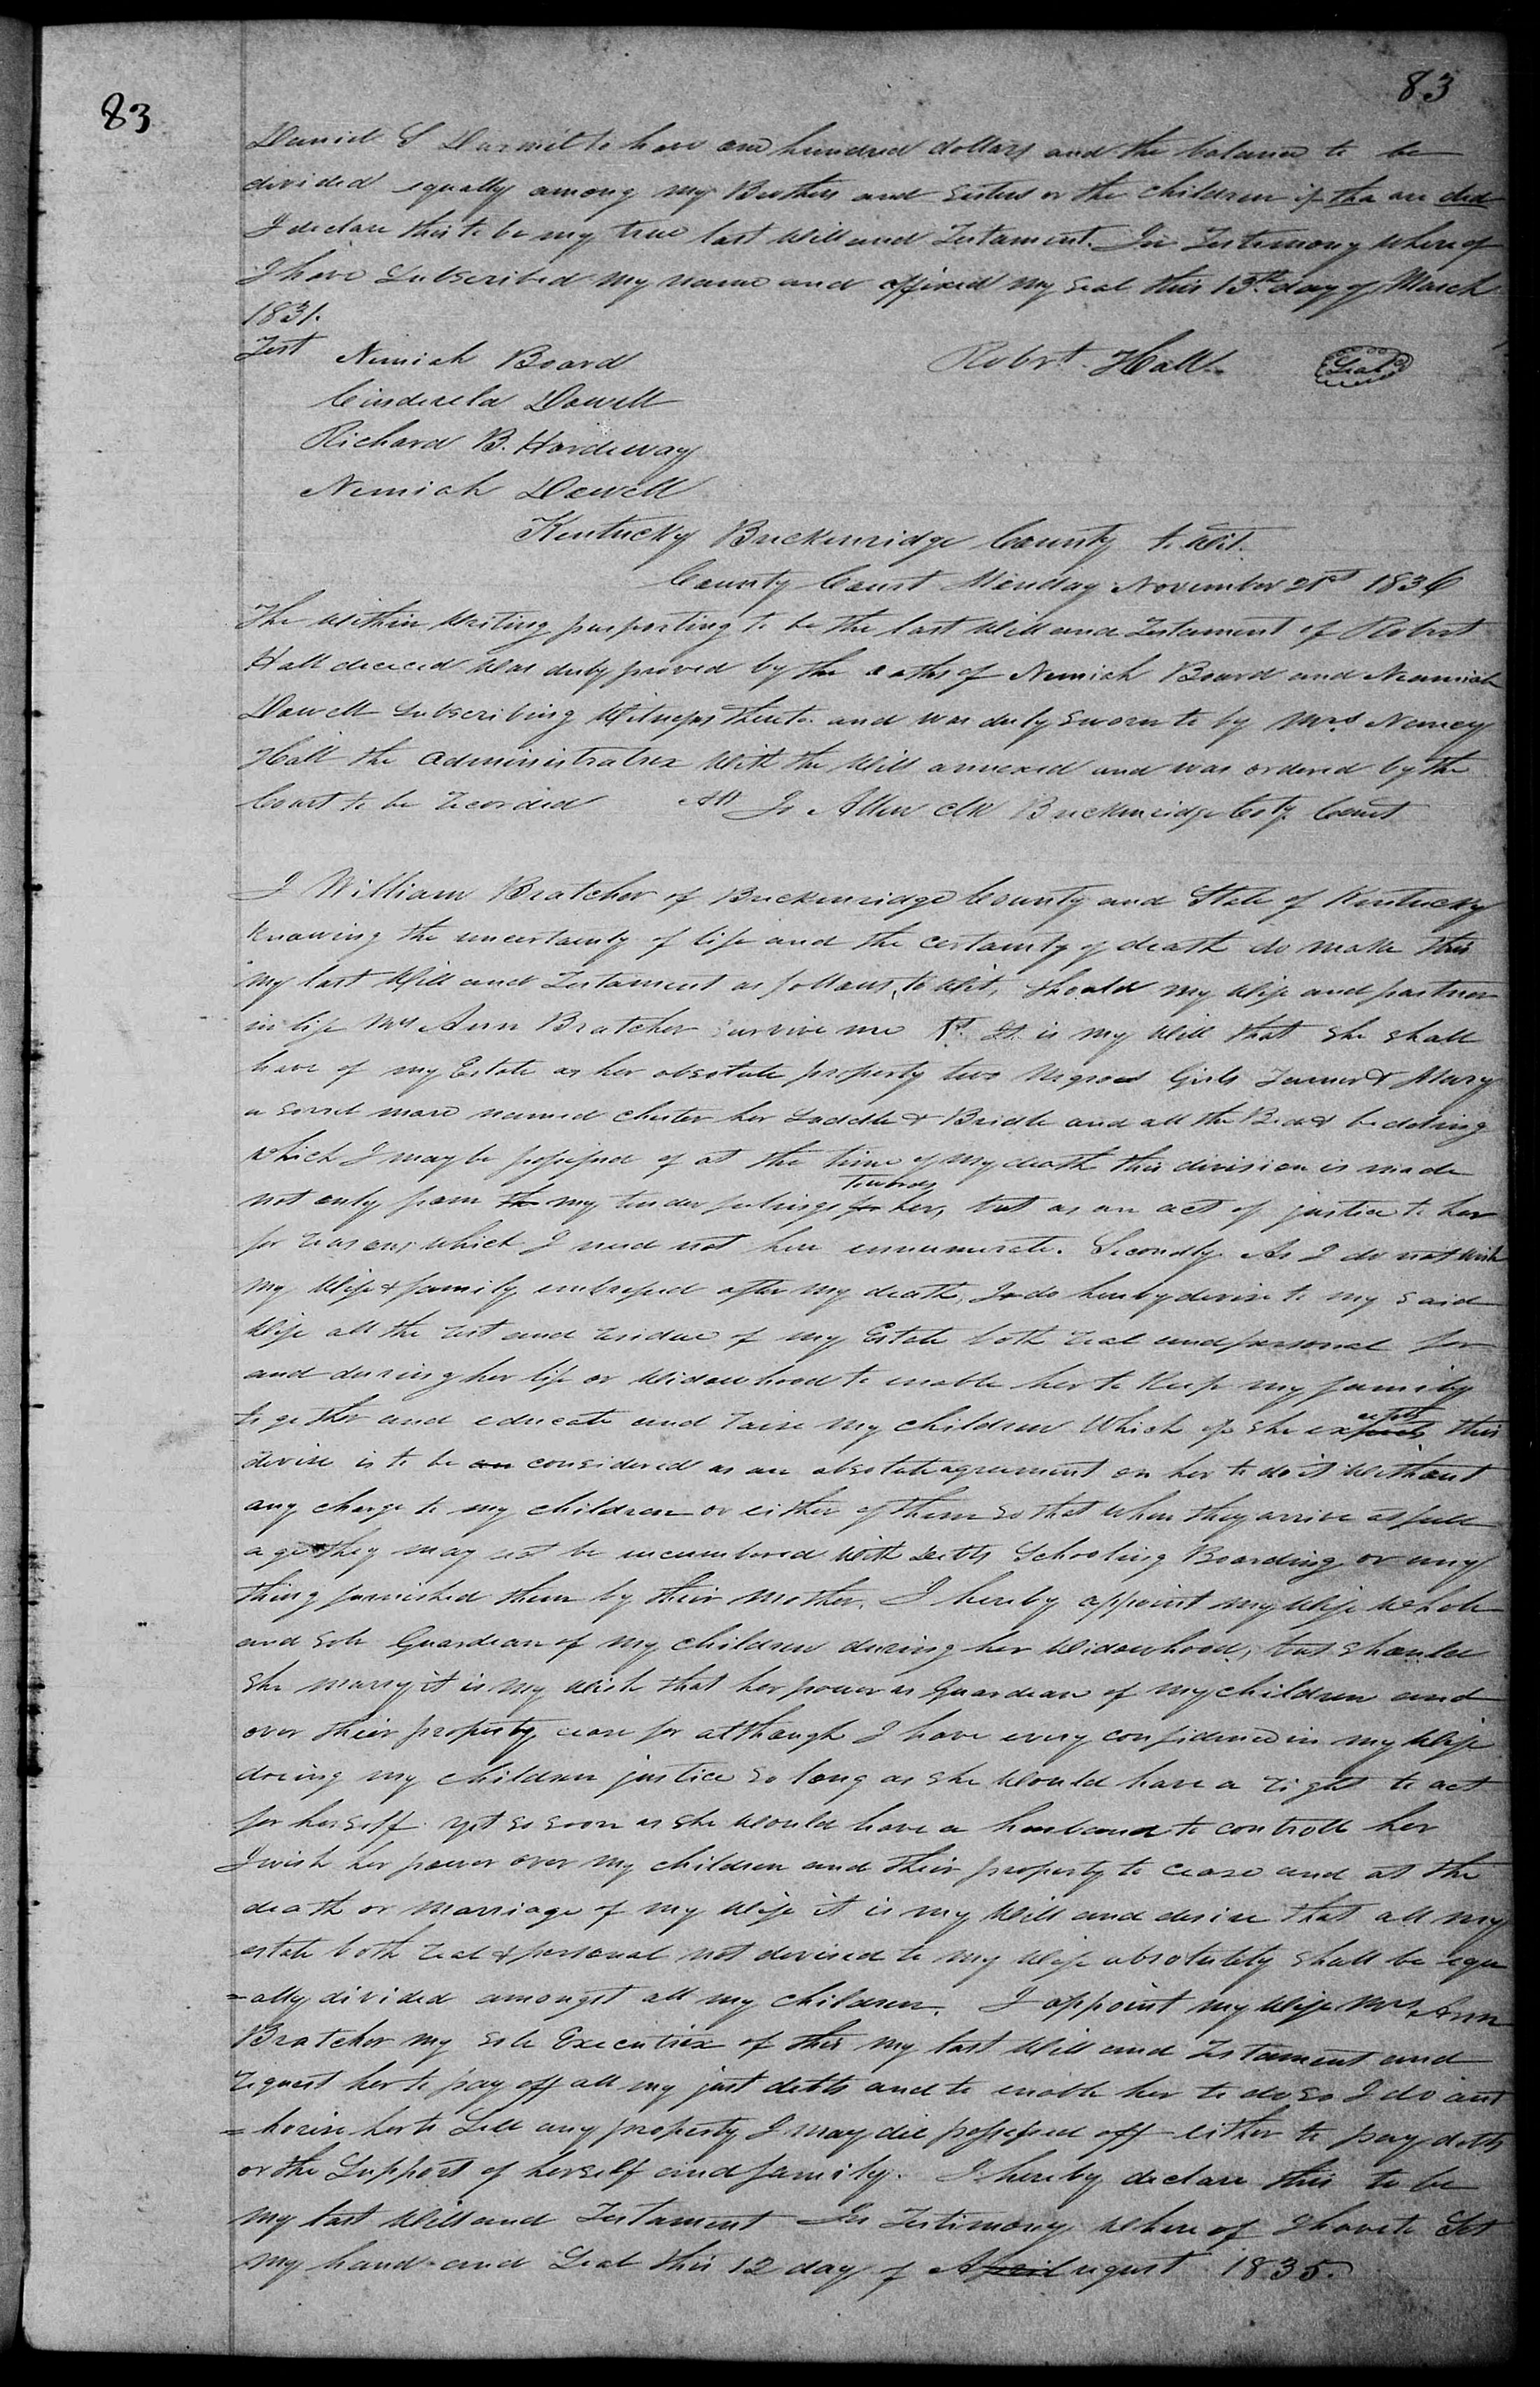 83
83
Daniel S Darmit to have one hundred dollars and the balance to be
divided equally among my Brothers and Sisters or the children if tha are ded
I declare this to be my true last Will and Testament. In Testimony where of
I have Subscribed my name and affixed my seal this 13th day of March
1831.
Test Nemiah Board Robrt. Hall Seal
Cinderela Dowell
Richard B. Hardeway
Nemiah Dowell
Kentucky Breckenridge County to Wit.
County Court Monday November 21st 1836
The within Writing purporting to be the last Will and Testament of Robert
Hall dececed was duly proved by the oaths of Nemiah Board and Nemiah
Dowell Subscribing Witnesses thereto and was duly sworn to by Mrs. Nancy
Hall the administratrix With the Will annexed and was ordered by the
Court to be recorded Att Jo Allen Clk Breckenridge Coty. Court
I William Bratcher of Breckenridge County and State of Kentucky
knowing the uncertainty of life and the certainty of death do make this
my last Will and Testament as follows, to Wit, Should my Wife and partner
in life Mrs Ann Bratcher survive me 1st. It is my Will that she shall
have of my Estate as her absolute property two Negroes Girls & Mary
a sorrel mare named her Saddle & Bridle and all the Beds & bedding
which I may be possessed of at the time of my death this division is made
not only from the my tender feelings for towards her, but as an act of justice to her
for reasons which I need not here ennumerate. Secondly As I do not wish
my Wife & family embresed after my death, I do hereby devise to my said
Wife all the rest and residue of my Estate both real and personal for
and during her life or Widowhood to enable her to keep my family
to gether and educate and raise my children Which if she this
devise is to be an considered as an absolute agreement on her to do it Without
any charge to my children or either of them so that when they arrive at full
age they may not be incumbered With debts Schooling Boarding or any
thing furnished them by their Mother. I hereby appoint my Wife Whole
and sole Guardian of my children during her Widowhood, but should
she marry it is my Wish that her power as Guardian of my children and
over their property cease for although I have every confidence in my Wife
doeing my children justice so long as she Would have a right to act
for herself yet so soon as she Would have a husband to controll her
I wish her power over my children and their property to cease and at the
death or Marriage of my Wife it is my Will and desire that all my
estate both real & personal not devised to my Wife absolutely shall be equ
=ally divided amongst all my children. I appoint my Wife Mrs. Ann
Bratcher my sole Executrix of this my last Will and Testament and
request her to pay off all my just debts and to enable her to do so I do aut
=horise her to Sell any property I may die possessed off either to pay debts
or the Support of herself and family. I hereby declare this to be
my last Will and Testament In Testimony Where of I have to Set
my hand and Seal this 12 day of April ugust 1835.